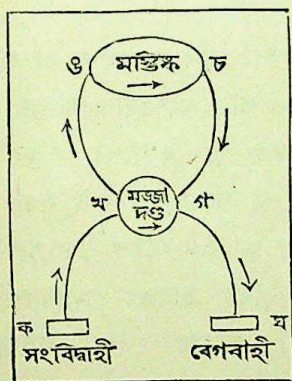 ঙ মস্তিষ্ক চ
খ মজ্জা দণ্ড গ
ক ঘ
সংবিদ্বাহী বেগবাহী